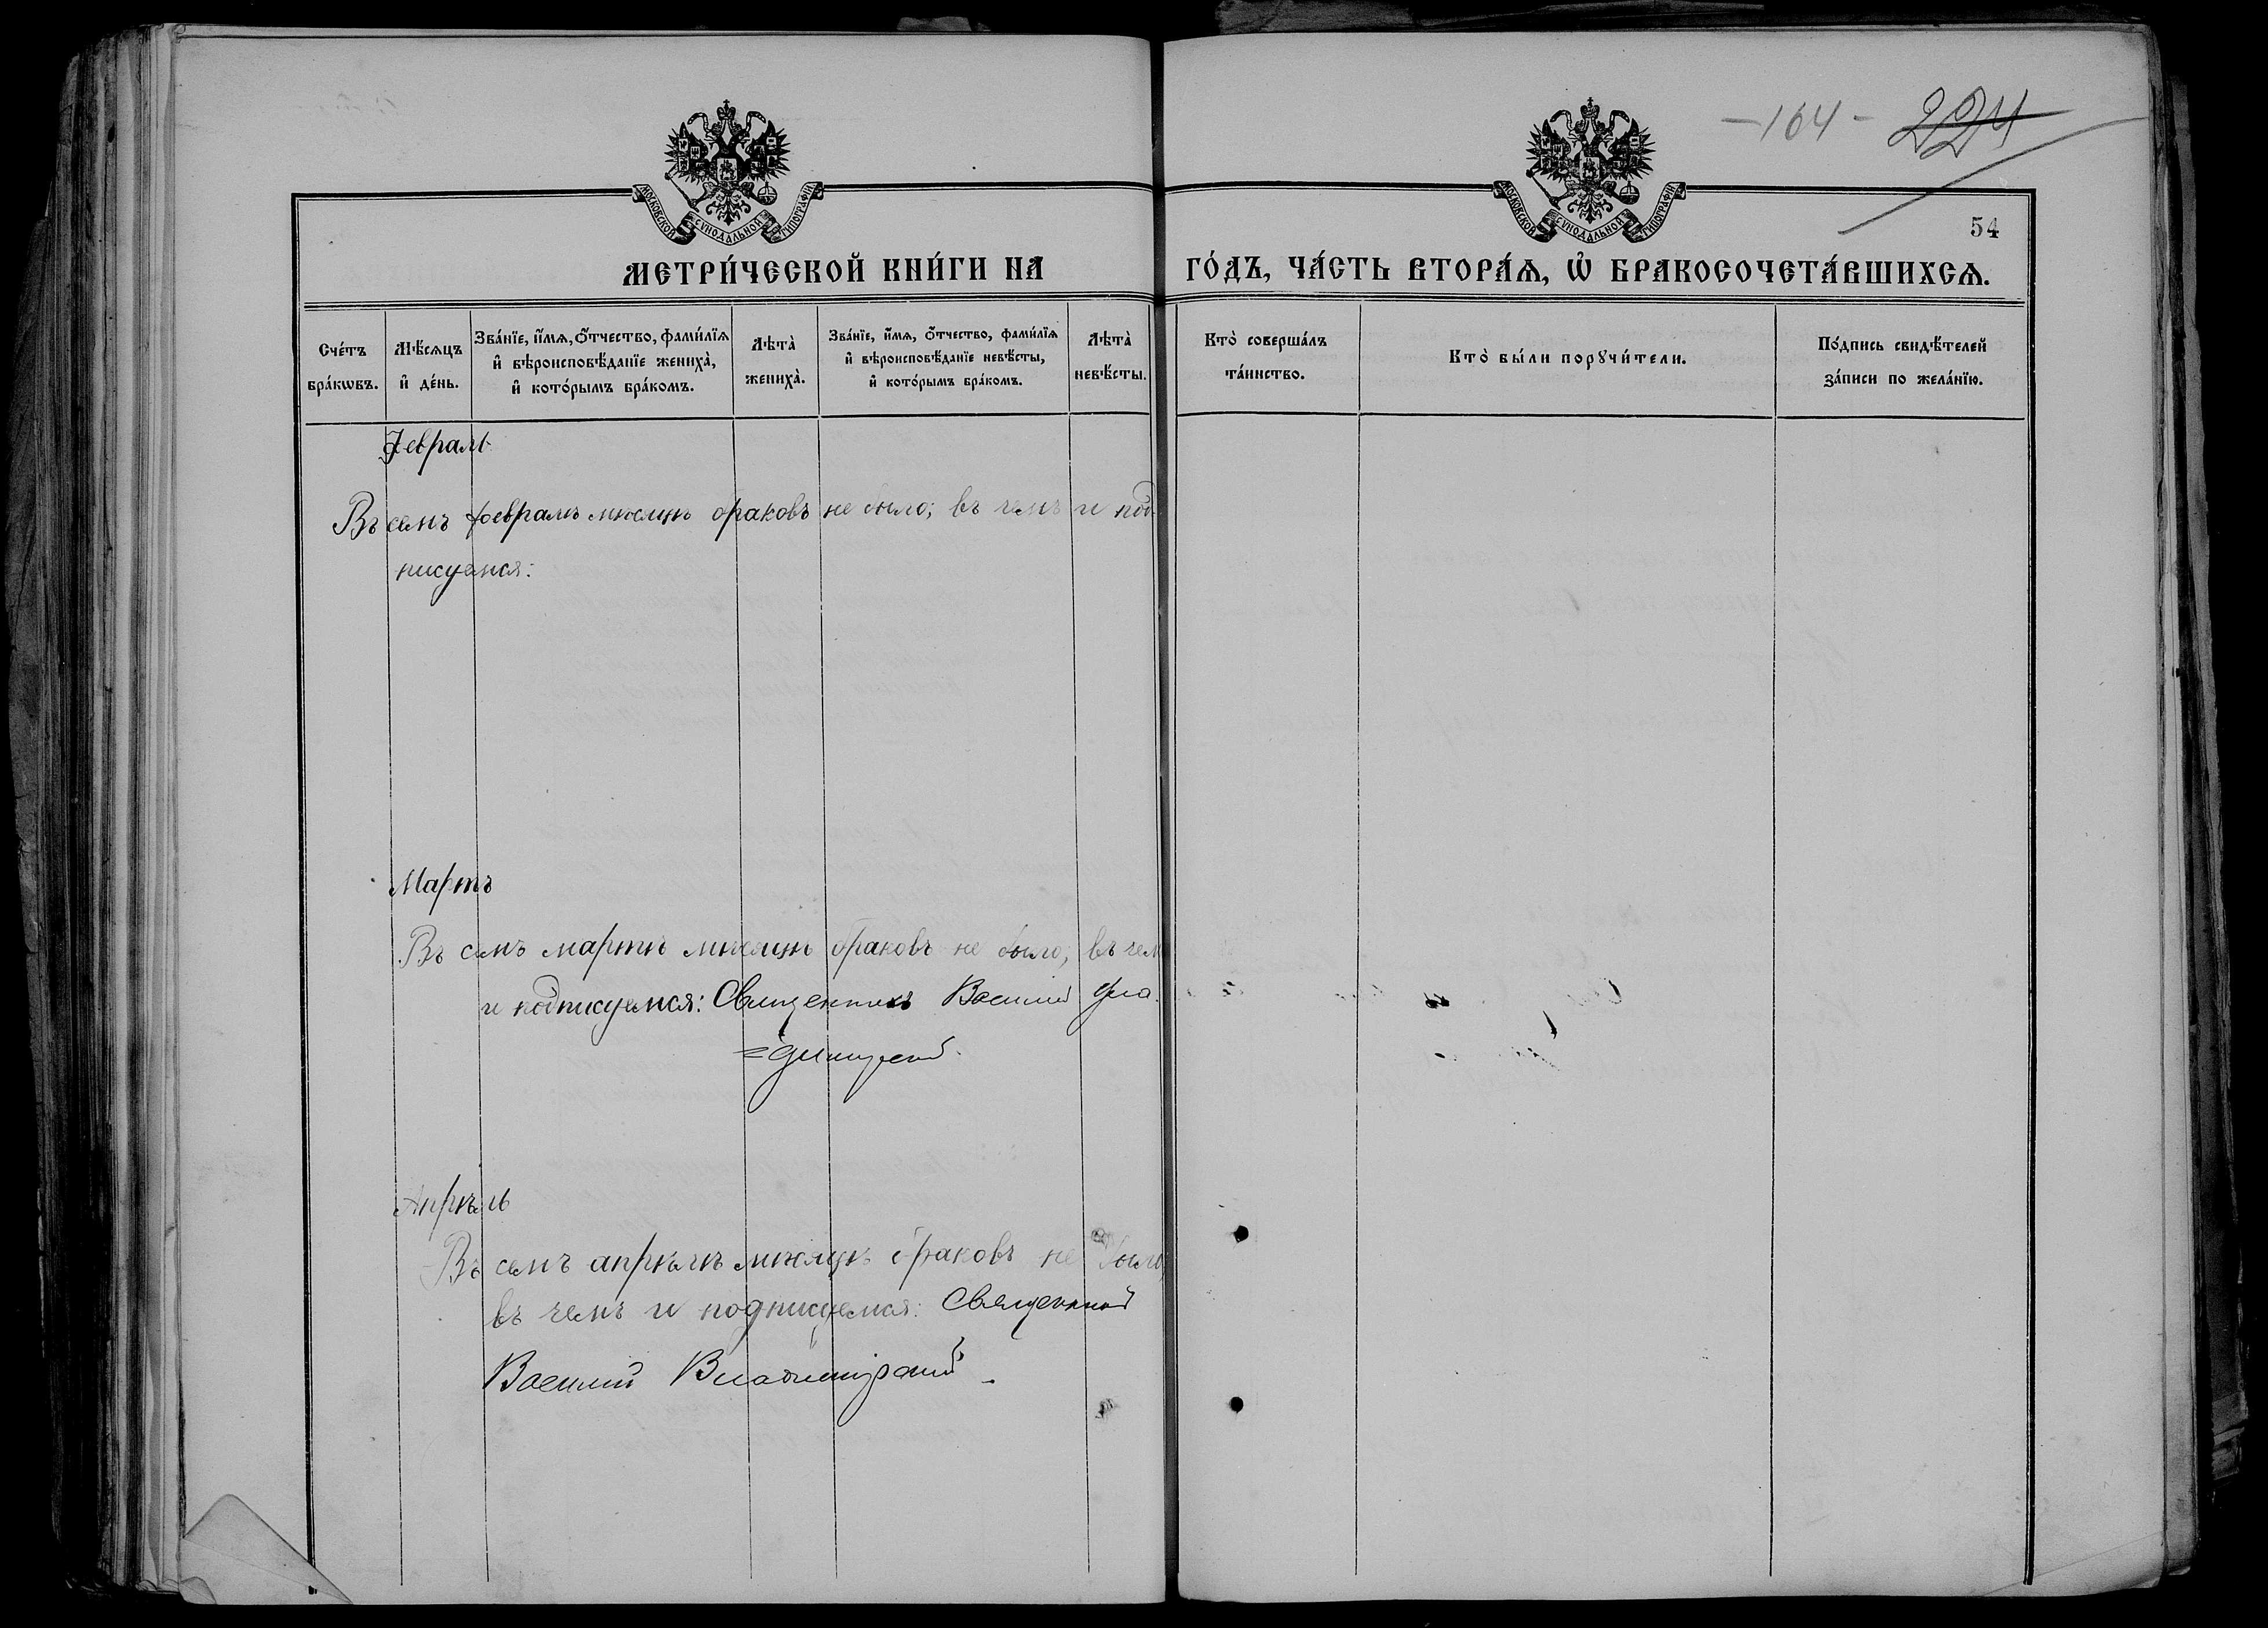 -164- 224
МОСКОВСКОЙ СѴНОДАЛЬНОЙ ТИПОГРАФІИ
МОСКОВСКОЙ СѴНОДАЛЬНОЙ ТИПОГРАФІИ
54
МЕТРИ́ЧЕСКОЙ КНИ́ГИ НА ГО́ДЪ, ЧА́СТЬ ВТОРА́Ѧ, Ѽ БРАКОСОЧЕТА́ВШИХСѦ.
Сче́тъ бра́кѡвъ.
Мѣ́сѧцъ и҆ де́нь.
Зва́нїе, и҆́мѧ, ѻ҆́тчество, фами́лїѧ
и҆ вѣроисповѣ́данїе жениха̀,
и҆ кото́рымъ бра́комъ.
Лѣта̀ жениха̀.
Зва́нїе, и҆́мѧ, ѻ҆́тчество, фами́лїѧ
и҆ вѣроисповѣ́данїе невѣ́сты,
и҆ кото́рымъ бра́комъ.
Лѣта̀ невѣ́сты.
Кто̀ соверша́лъ
та́инство.
Кто̀ бы́ли порꙋчи́тели.
По́дпись свидѣ́телей
за́писи по жела́нїю.
Февраль
Въ семъ февралѣ мѣсяцѣ браковъ не было; въ чемъ и под-
писуемся:
Мартъ
Въ семъ мартѣ мѣсяцѣ браковъ не было, въ чем
и подписуемся: Священникъ Василій Вла
=димирскій.
Апрѣль
Въ семъ апрѣлѣ мѣсяцѣ браковъ не было,
въ чемъ и подписуемся: Священникъ
Василій Владимірскій